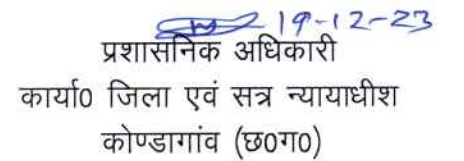 19-12-23
प्रशासनिक अधिकारी
कार्या0 जिला एवं सत्र न्यायाधीश
कोण्डागांव (छ0ग0)